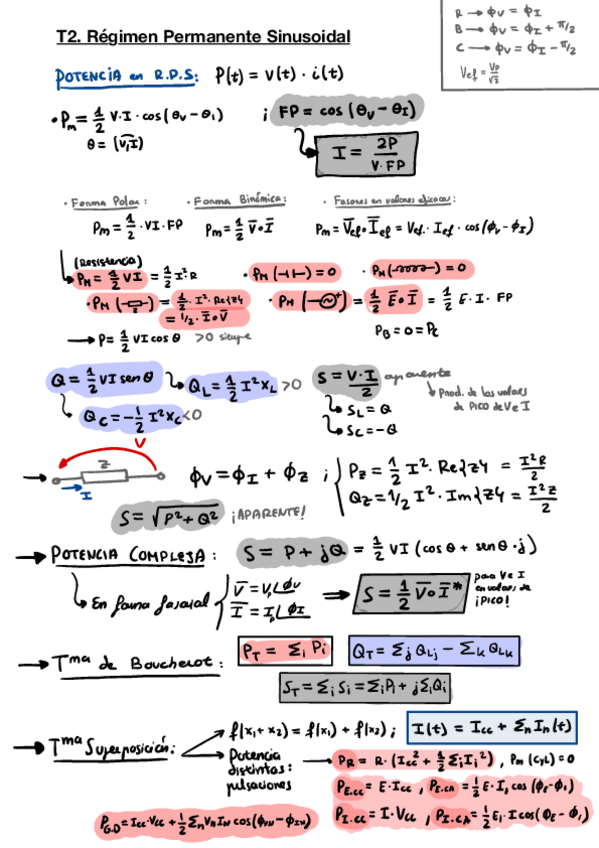 R → ϕv = ϕI
B → ϕv = ϕI + π/2
C → ϕv = ϕI - π/2
Vef = Vp/√2
T2. Régimen Permanente Sinusoidal
POTENCIA en R.P.S: P(t) = v(t) · i(t)
· Pm = 1/2 V·I·cos(θv - θi) ; FP = cos(θv - θI)
θ = (V,I)
I = 2P/V·FP
· Forma Polar: · Forma Binómica: · Fasores en valores eficaces:
Pm = 1/2 · VI · FP Pm = 1/2 V̅∘I̅ Pm = V̅ef∘I̅ef = Vef · Ief · cos(ϕv - ϕI)
(Resistencia)
PM = 1/2 VI = 1/2 I²R · PM(⊣⊢) = 0 · PM( ) = 0
· PM( ) = 1/2 · I² · Re{z} · PM( ) = 1/2 E̅∘I̅ = 1/2 E·I·FP
= 1/2 · I̅∘V̅
PB = 0 = PC
→ P = 1/2 VI cos θ >0 siempre
Q = 1/2 VI sen θ QL = 1/2 I²XL >0 S = V·I/2 aparente
Prod. de los valores
de PICO de V e I
QC = -1/2 I²XC <0 SL = Q
SC = -Q
V
Z
I
ϕV = ϕI + ϕZ ; PZ = 1/2 I² · Re{z} = I²R/2
QZ = 1/2 I² · Im{z} = I²Z/2
S = √P² + Q² ¡APARENTE!
→ POTENCIA COMPLEJA: S = P + jQ = 1/2 VI (cos θ + sen θ · j)
En forma fasorial V̅ = V,∠ϕv
I̅ = I,∠ϕI
⇒ S = 1/2 V̅∘I̅*
para V e I
en valores de
¡PICO!
→ Tma de Boucherot: PT = Σi Pi QT = Σj QLj - Σk QLk
ST = Σi Si = Σi Pi + jΣi Qi
→ Tma Superposición: f(x1 + x2) = f(x1) + f(x2) ; I(t) = Icc + Σn In(t)
Potencia
distintas:
pulsaciones
PR = R · (Icc² + 1/2 Σi Ii²), PM (C y L) = 0
PE.CC = E·Icc, PE.CA = 1/2 E·I, cos(ϕE - ϕi)
PI.CC = I·Vcc, PI.CA = 1/2 E, I cos(ϕE - ϕi)
PG.D = Icc·Vcc + 1/2 Σn Vn In cos(ϕVN - ϕIN)